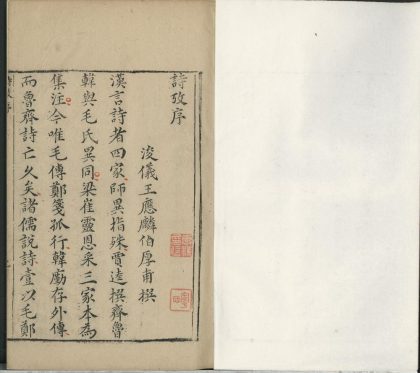 詩攷序
浚儀王應麟伯厚甫撰
漢言詩者四家師異指殊賈逵撰齊魯
韓與毛氏異同梁崔靈恩采三家本為
集注今唯毛傳鄭箋孤行韓廑存外傳
而魯齊詩亡久矣諸儒說詩壹以毛鄭